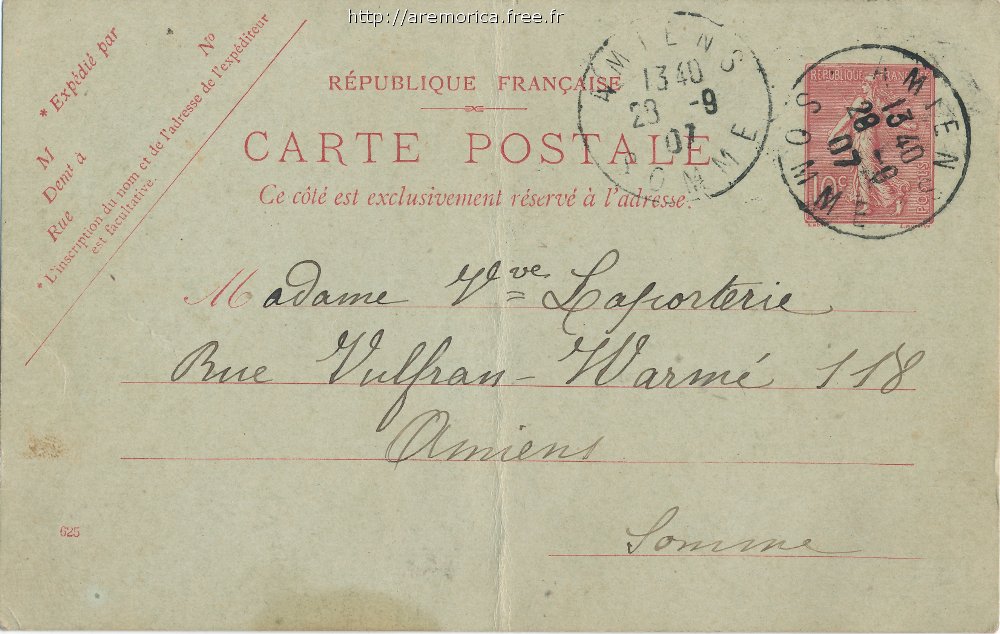 http://aremorica.free.fr
* Expédié par
N°
M
Demt à
Rue
* L'inscription du nom et de l'adresse de l'expéditeur
est facultative.
RÉPUBLIQUE FRANÇAISE
CARTE POSTALE
Ce côté est exclusivement réservé à l'adresse.
AMIENS
13 40
28 -9
07
SOMME
RÉPUBLIQUE FRANÇAISE
10c
POSTES
AMIENS
13 40
28 -9
07
SOMME
Madame Vve Laporterie
Rue Vulfran-Warmé 118
Amiens
Somme
625